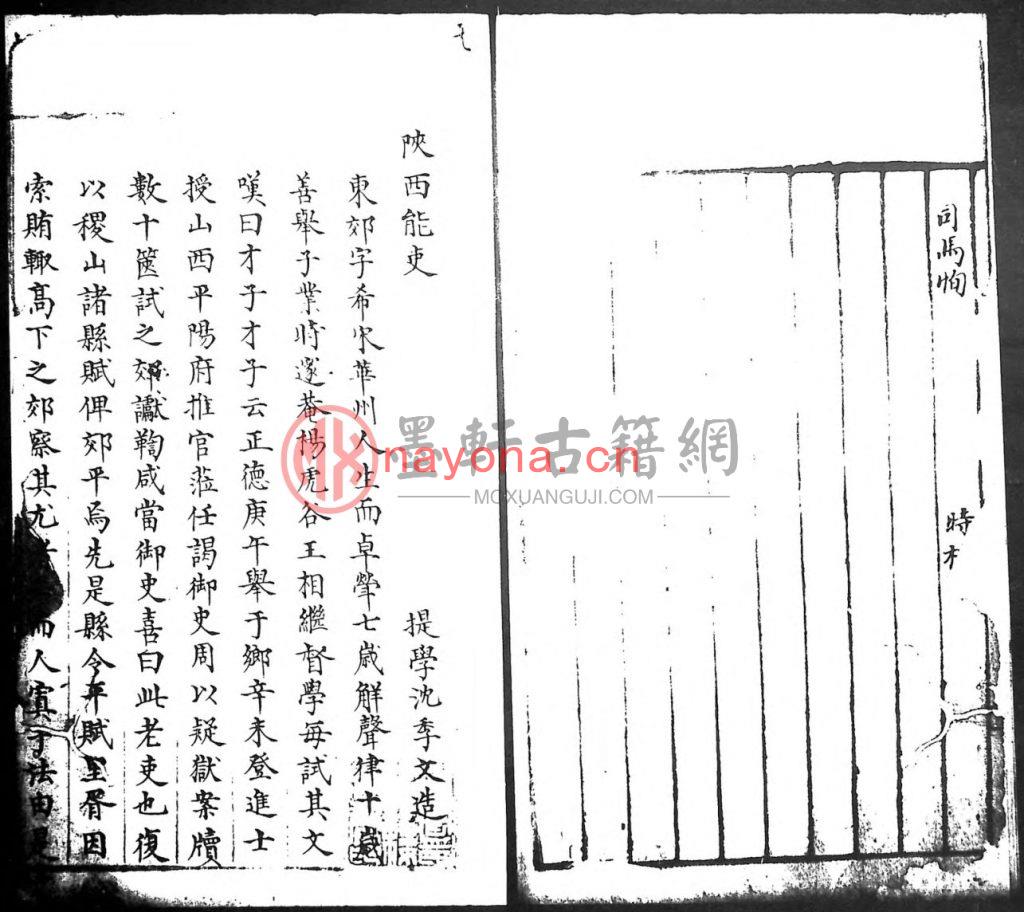 司馬恂
時才
陝西能吏
提學沈季文造
東郊字希宋華州人生而卓犖七歲解聲律十歲
善舉子業時邃菴楊虎谷王相繼督學每試其文
嘆曰才子才子云正德庚午舉于鄉辛未登進士
授山西平陽府推官蒞任謁御史周以疑獄案牘
數十篋試之郊讞鞫咸當御史喜曰此老吏也復
以稷山諸縣賦俾郊平焉先是縣令年賦里胥因
索賄輙高下之郊察其尤 而人寘于法由是
墨軒古籍網
nayona.cn
MOXUANGUJI.COM